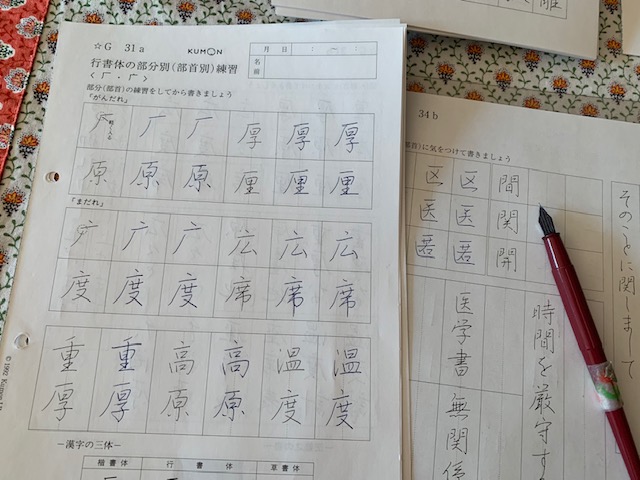 ☆G 31a
KUMON
月 日 : ~ :
名前
行書体の部分別(部首別)練習
〈厂・广〉
部分(部首)の練習をしてから書きましょう
「がんだれ」
厂 厂 厂 厚 厚 厚
原 原 原 厘 厘 厘
「まだれ」
广 广 广 広 広 広
度 度 度 席 席 席
重 重 高 高 温 温
厚 厚 原 原 度 度
―漢字の三体―
楷書体 行書体 草書体
34b
首)に気をつけて書きましょう
区 区 間
医 医 関
匿 匿 開
そのことに関しまして
時間を厳守す
医学書 無関係
離
© 1992 Kumon